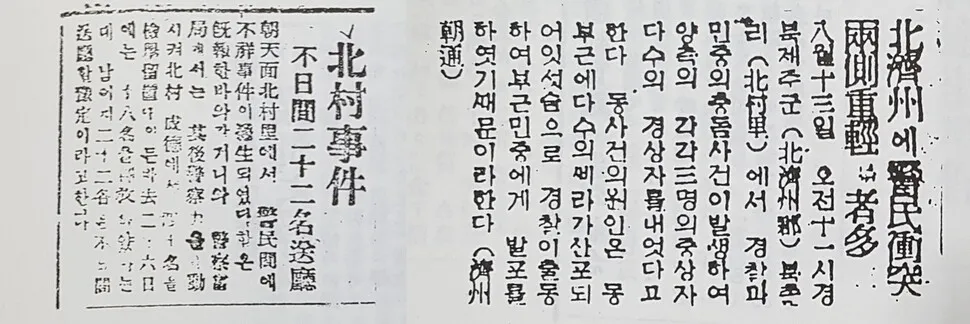 北濟州에警民衝突
兩側重輕 者多
八월十三일 오전十一시경
북제주군(北濟州郡) 북촌
리(北村里)에서 경찰과
민중의충돌사건이발생하여
양측의 각각三명의중상자
다수의 경상자를내엇다고
한다 동사건의원인은 동
부근에다수의삐라가산포되
어잇섯슴으로 경찰이출동
하여부근민중에게 발포를
하엿기때문이라한다(濟州
朝通)
北村事件
不日間二十二名送廳
朝天面北村里에서 警民間에
不祥事件이惹生되엿다함은
旣報한바와가거니와 警察當
局에서는 其後警察力을 動
시켜北村 成德에서 十名을
檢擧留置中이든바去二十六日
에는 十八名을釋放하얏다는
데 남어지二十二名은不日間
送廳할豫定이라고한다